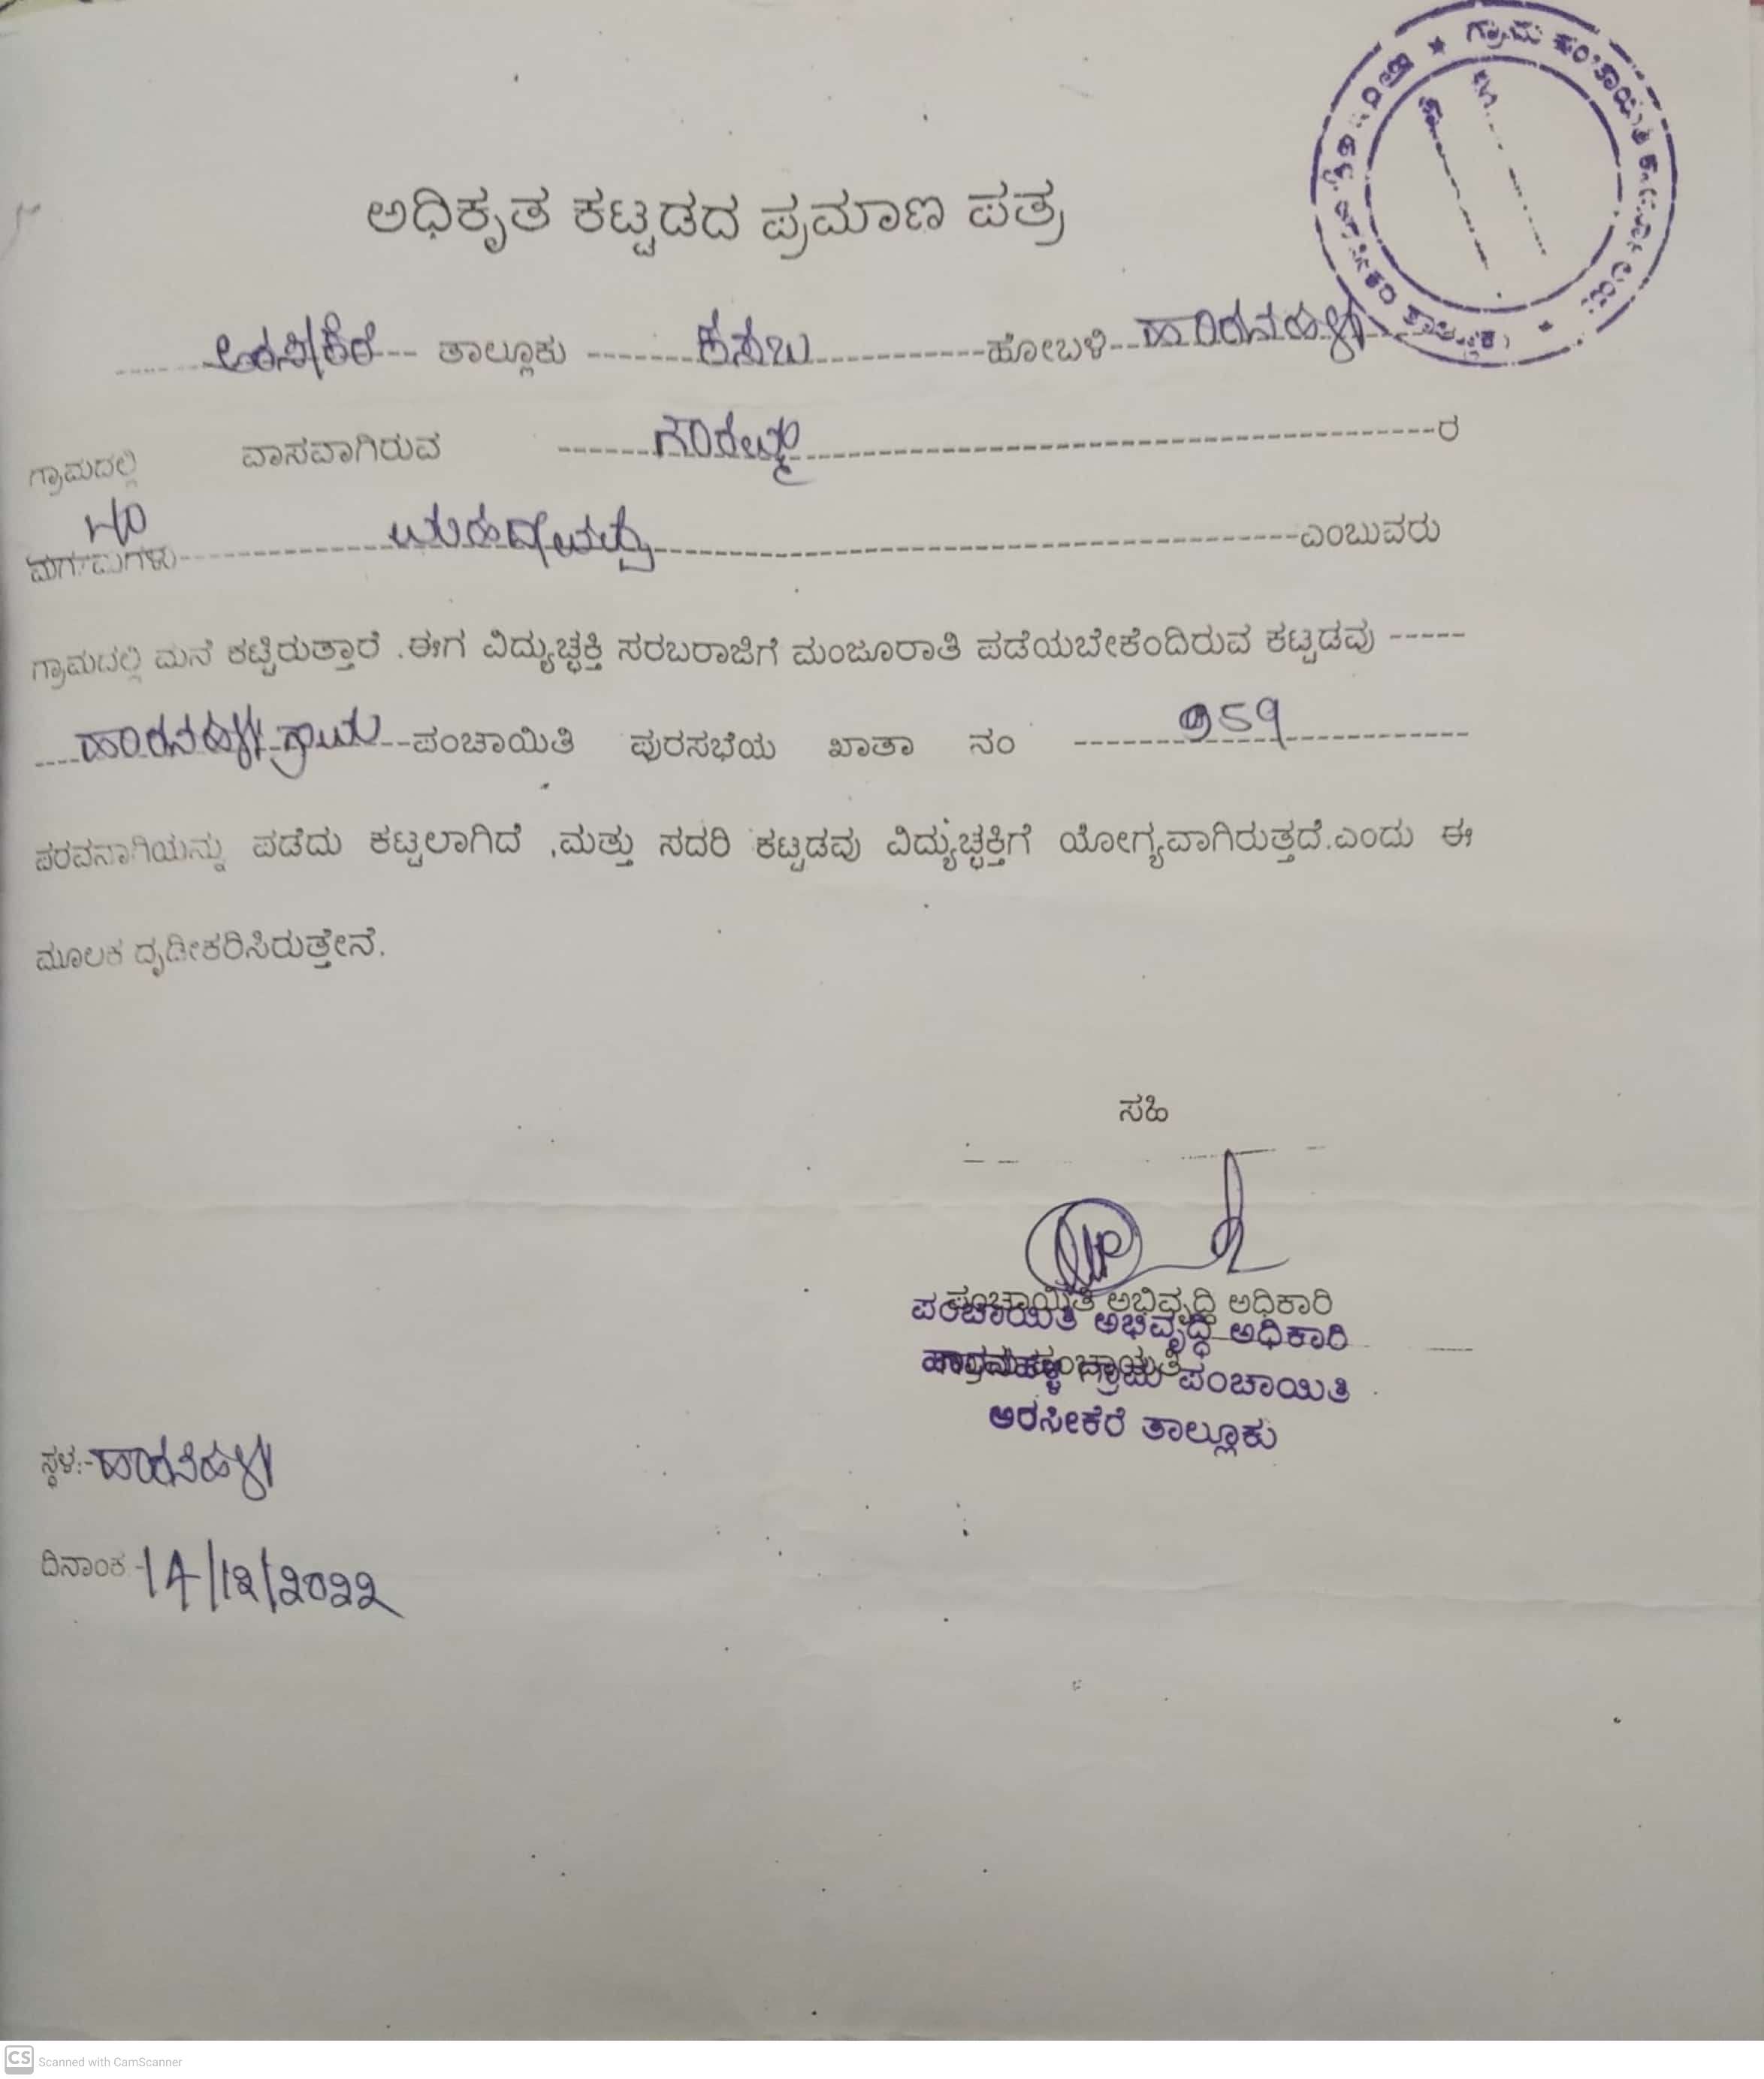 ಗ್ರಾಮ ಪಂಚಾಯಿತಿ ಕಾರ್ಯಾಲಯ
ಅಧಿಕೃತ ಕಟ್ಟಡದ ಪ್ರಮಾಣ ಪತ್ರ
ಅರಸೀಕೆರೆ ತಾಲ್ಲೂಕು ಕಸಬ ಹೋಬಳಿ ಹಾರನಹಳ್ಳಿ
ಗ್ರಾಮದಲ್ಲಿ ವಾಸವಾಗಿರುವ ಗೌರಮ್ಮ ರ
W/O
ಮಗ/ಮಗಳು ಮಹದೇವಪ್ಪ ಎಂಬುವರು
ಗ್ರಾಮದಲ್ಲಿ ಮನೆ ಕಟ್ಟಿರುತ್ತಾರೆ .ಈಗ ವಿದ್ಯುಚ್ಛಕ್ತಿ ಸರಬರಾಜಿಗೆ ಮಂಜೂರಾತಿ ಪಡೆಯಬೇಕೆಂದಿರುವ ಕಟ್ಟಡವು
ಹಾರನಹಳ್ಳಿ ಗ್ರಾಮ ಪಂಚಾಯಿತಿ ಪುರಸಭೆಯ ಖಾತಾ ನಂ
ಪರವನಾಗಿಯನ್ನು ಪಡೆದು ಕಟ್ಟಲಾಗಿದೆ ,ಮತ್ತು ಸದರಿ ಕಟ್ಟಡವು ವಿದ್ಯುಚ್ಛಕ್ತಿಗೆ ಯೋಗ್ಯವಾಗಿರುತ್ತದೆ.ಎಂದು ಈ
ಮೂಲಕ ದೃಡೀಕರಿಸಿರುತ್ತೇನೆ.
ಸಹಿ
ಪಂಚಾಯಿತಿ ಅಭಿವೃದ್ಧಿ ಅಧಿಕಾರಿ
ಪಂಚಾಯಿತಿ ಅಭಿವೃದ್ಧಿ ಅಧಿಕಾರಿ
ಹಾರನಹಳ್ಳಿ ಗ್ರಾಮ ಪಂಚಾಯಿತಿ
ಅರಸೀಕೆರೆ ತಾಲ್ಲೂಕು
ಸ್ಥಳ:- ಹಾರನಹಳ್ಳಿ
ದಿನಾಂಕ -14/12/2022
CS Scanned with CamScanner